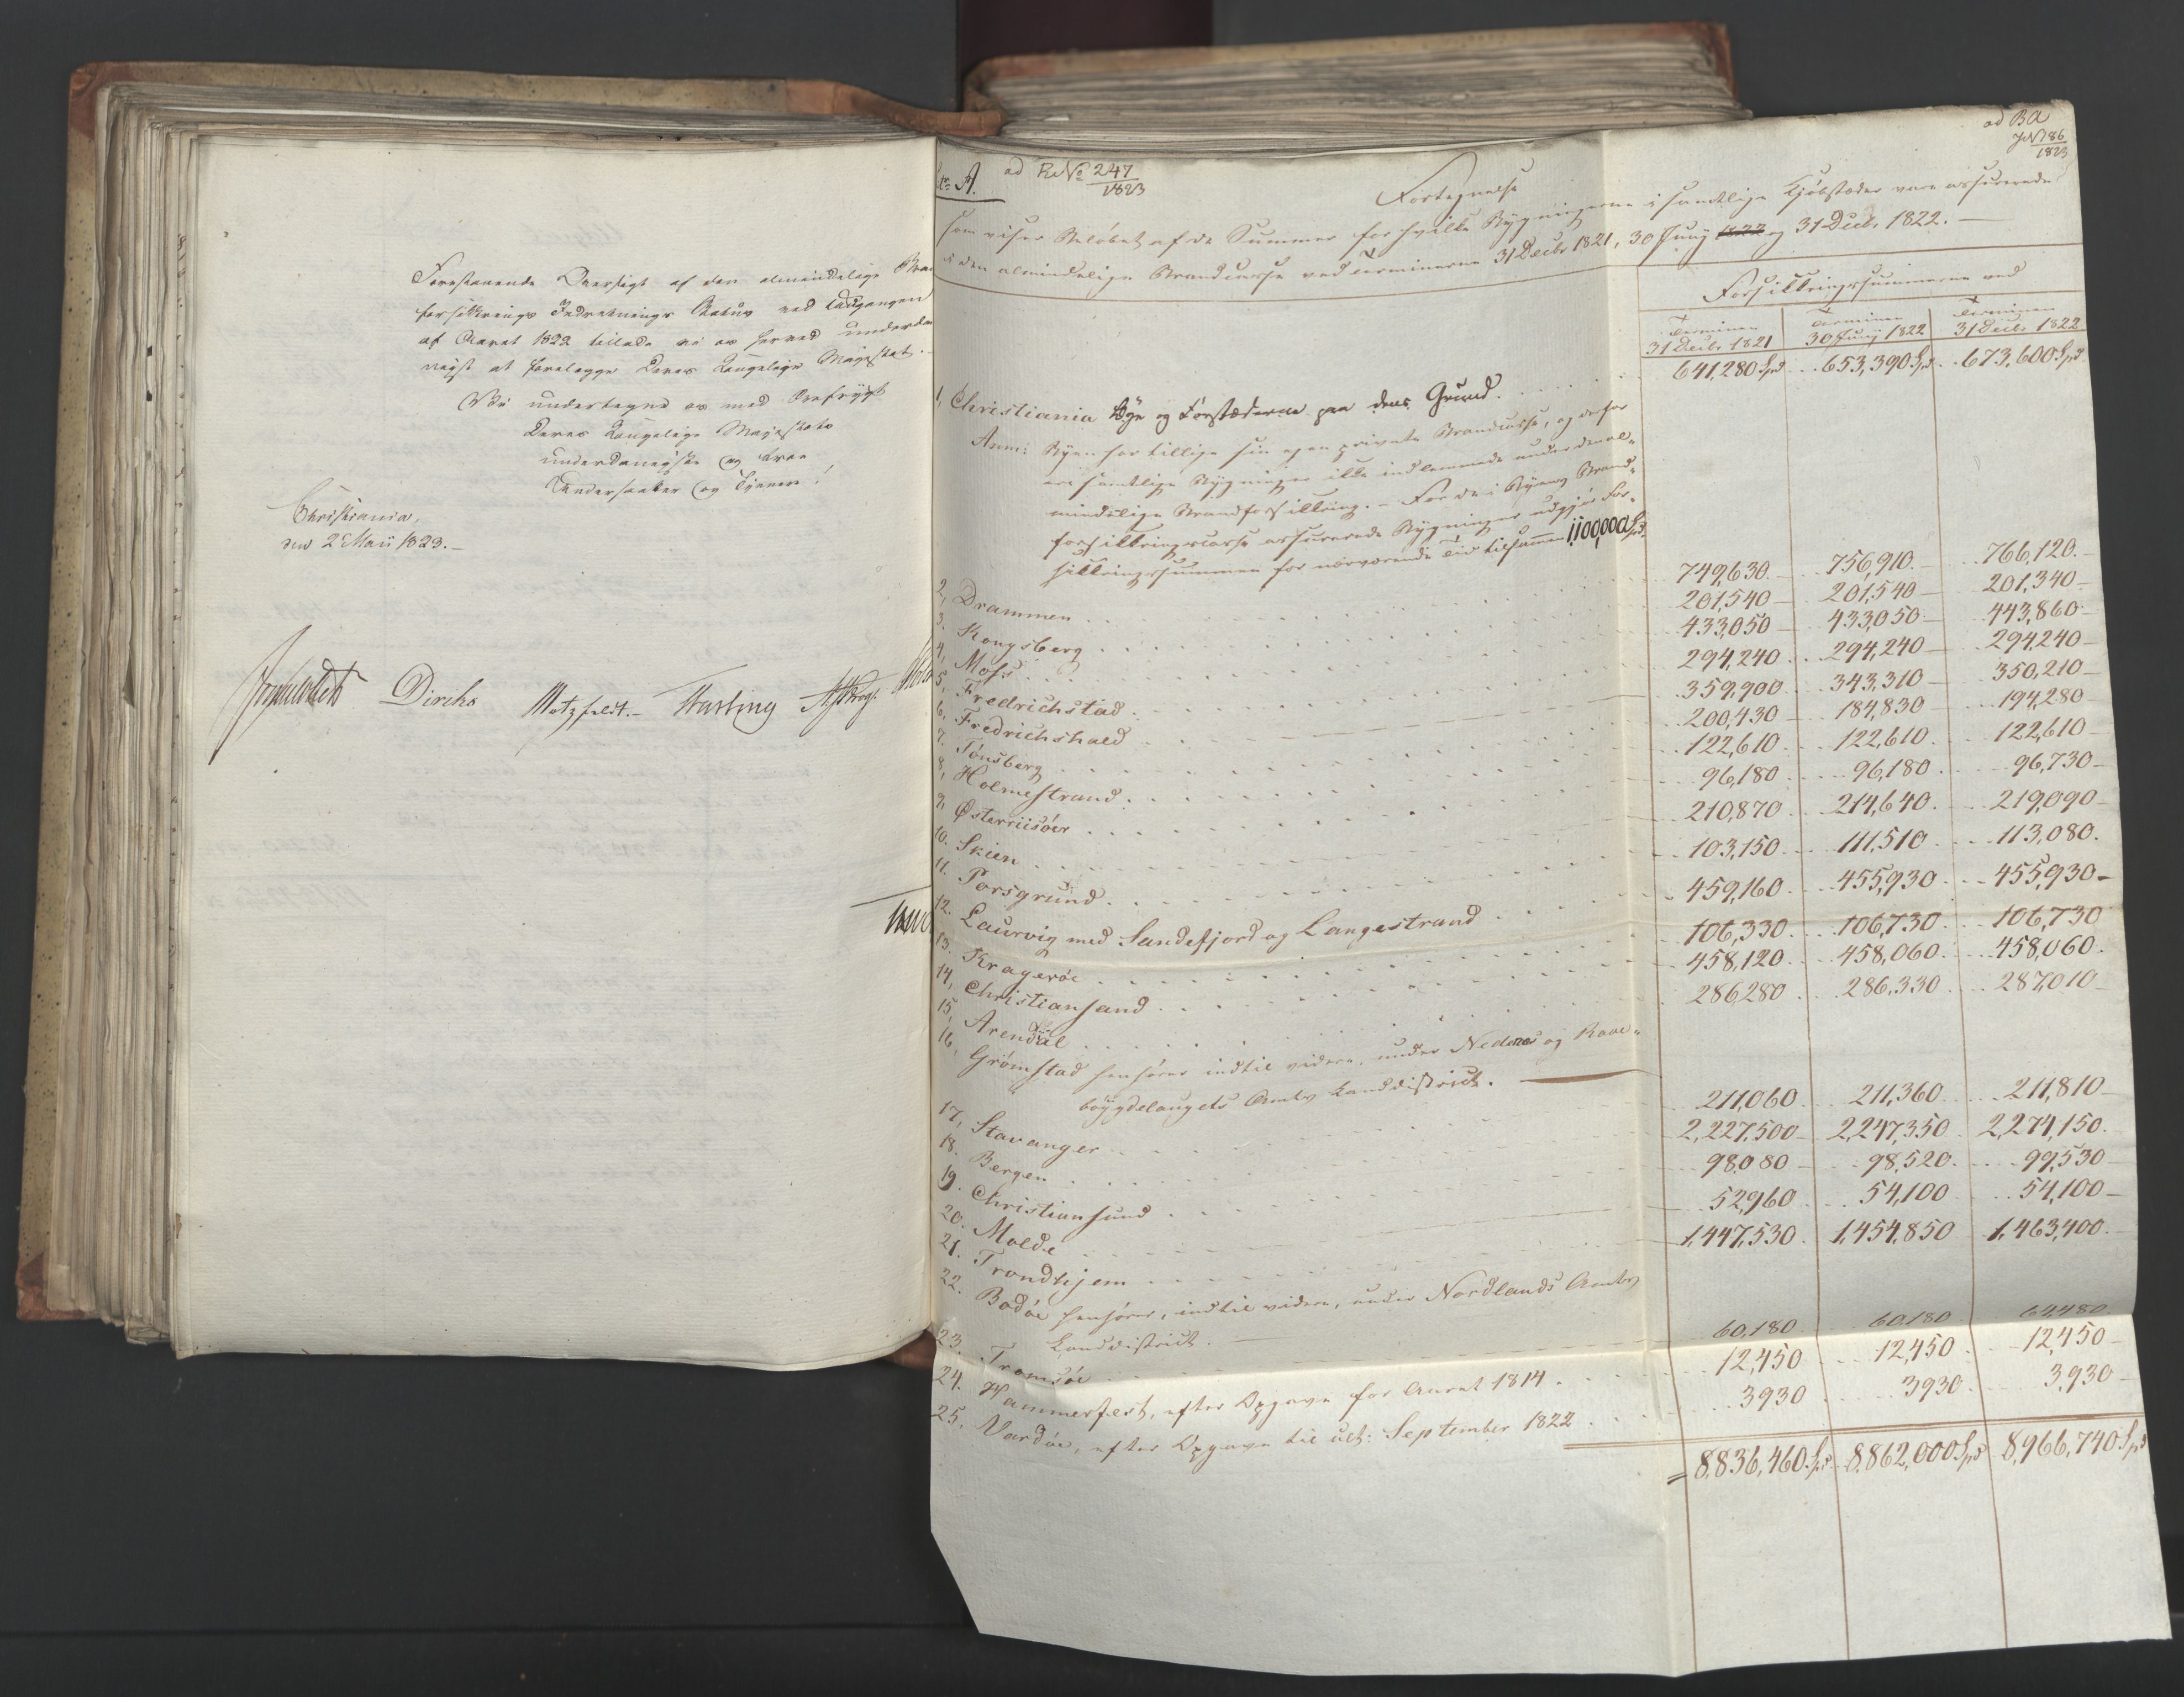 Forestaaende Oversigt af den almindelige Bran
forsikrings Indretnings Status ved Udgangen
af Aaret 1822 tillade vi os herved underda
nigst at forelægge Deres Kongelige Majestæt.
Vi undertegne os med Ærefrygt
Deres Kongelige Majestæts
underdanigste og troe
Undersaatter og Tjenere!
Christiania,
den 2 Maii 1823.
Diriks Motzfeldt. Fasting
A. ad R No 247/1823
ad B a
J No 186/1823
Fortegnelse
som viser Beløbet af de Summer for hvilke Bygningerne i samtlige Kjøbstæder vare assurerede
i den almindelige Brandcasse ved Terminerne 31 Decbr 1821, 30 Juny 1822 og 31 Decbr 1822.
Forsikkringssummerne ved
Terminen 31 Decbr 1821 Terminen 30 Juny 1822 Terminen 31 Decbr 1822
1, Christiania Bye og Forstæderne paa dens Grund. 641,280 Spd 653,390 Spd 673,600 Spd
Anm: Byen har tillige sin egen private Brandcasse, og derfor
ere samtlige Bygninger ikke indlemmede under den al-
mindelige Brandforsikkring. - For de i Byens Brand-
forsikkringscasse assurerede Bygninger udgjør For-
sikkringssummen for nærværende Tid tilsammen 1,100,000 Spd.
2, Drammen 749,630 756,910 766,120
3. Kongsberg 201,540 201,540 201,340
4, Moss 433,050 433,050 443,860
5, Fredrichstad 294,240 294,240 294,240
6. Fredrichshald 359,900 343,310 350,210
7. Tønsberg 200,430 184,830 194,280
8, Holmestrand 122,610 122,610 122,610
9, Østerriisøer 96,180 96,180 96,730
10. Skien 210,870 214,640 219,090
11. Porsgrund 103,150 111,510 113,080
12. Laurvig med Sandefjord og Langestrand 459,160 455,930 455,930
13. Kragerøe 106,330 106,730 106,730
14, Christiansand 458,120 458,060 458,060
15, Arendal 286,280 286,330 287,010
16, Grømstad henhører indtil videre, under Nedenæs og Raae-
bøygdelaugets Amts Landdistrict.
17, Stavanger 211,060 211,360 211,810
18. Bergen 2,227,500 2,247,350 2,274,150
19. Christiansund 98,080 98,520 99,530
20. Molde 52,960 54,100 54,100
21. Trondhjem 1,447,530 1,454,850 1,463,400
22. Bodøe henhører, indtil videre, under Nordlands Amts
Landdistrict.
23. Tromsøe 60,180 60,180 64,480
24. Hammerfest, efter Opgave for Aaret 1814 12,450 12,450 12,450
25. Vardøe, efter Opgave til ult: September 1822 3930 3930 3,930
= 8,836,460 Spd 8,862,000 Spd 8,966,740 Spd